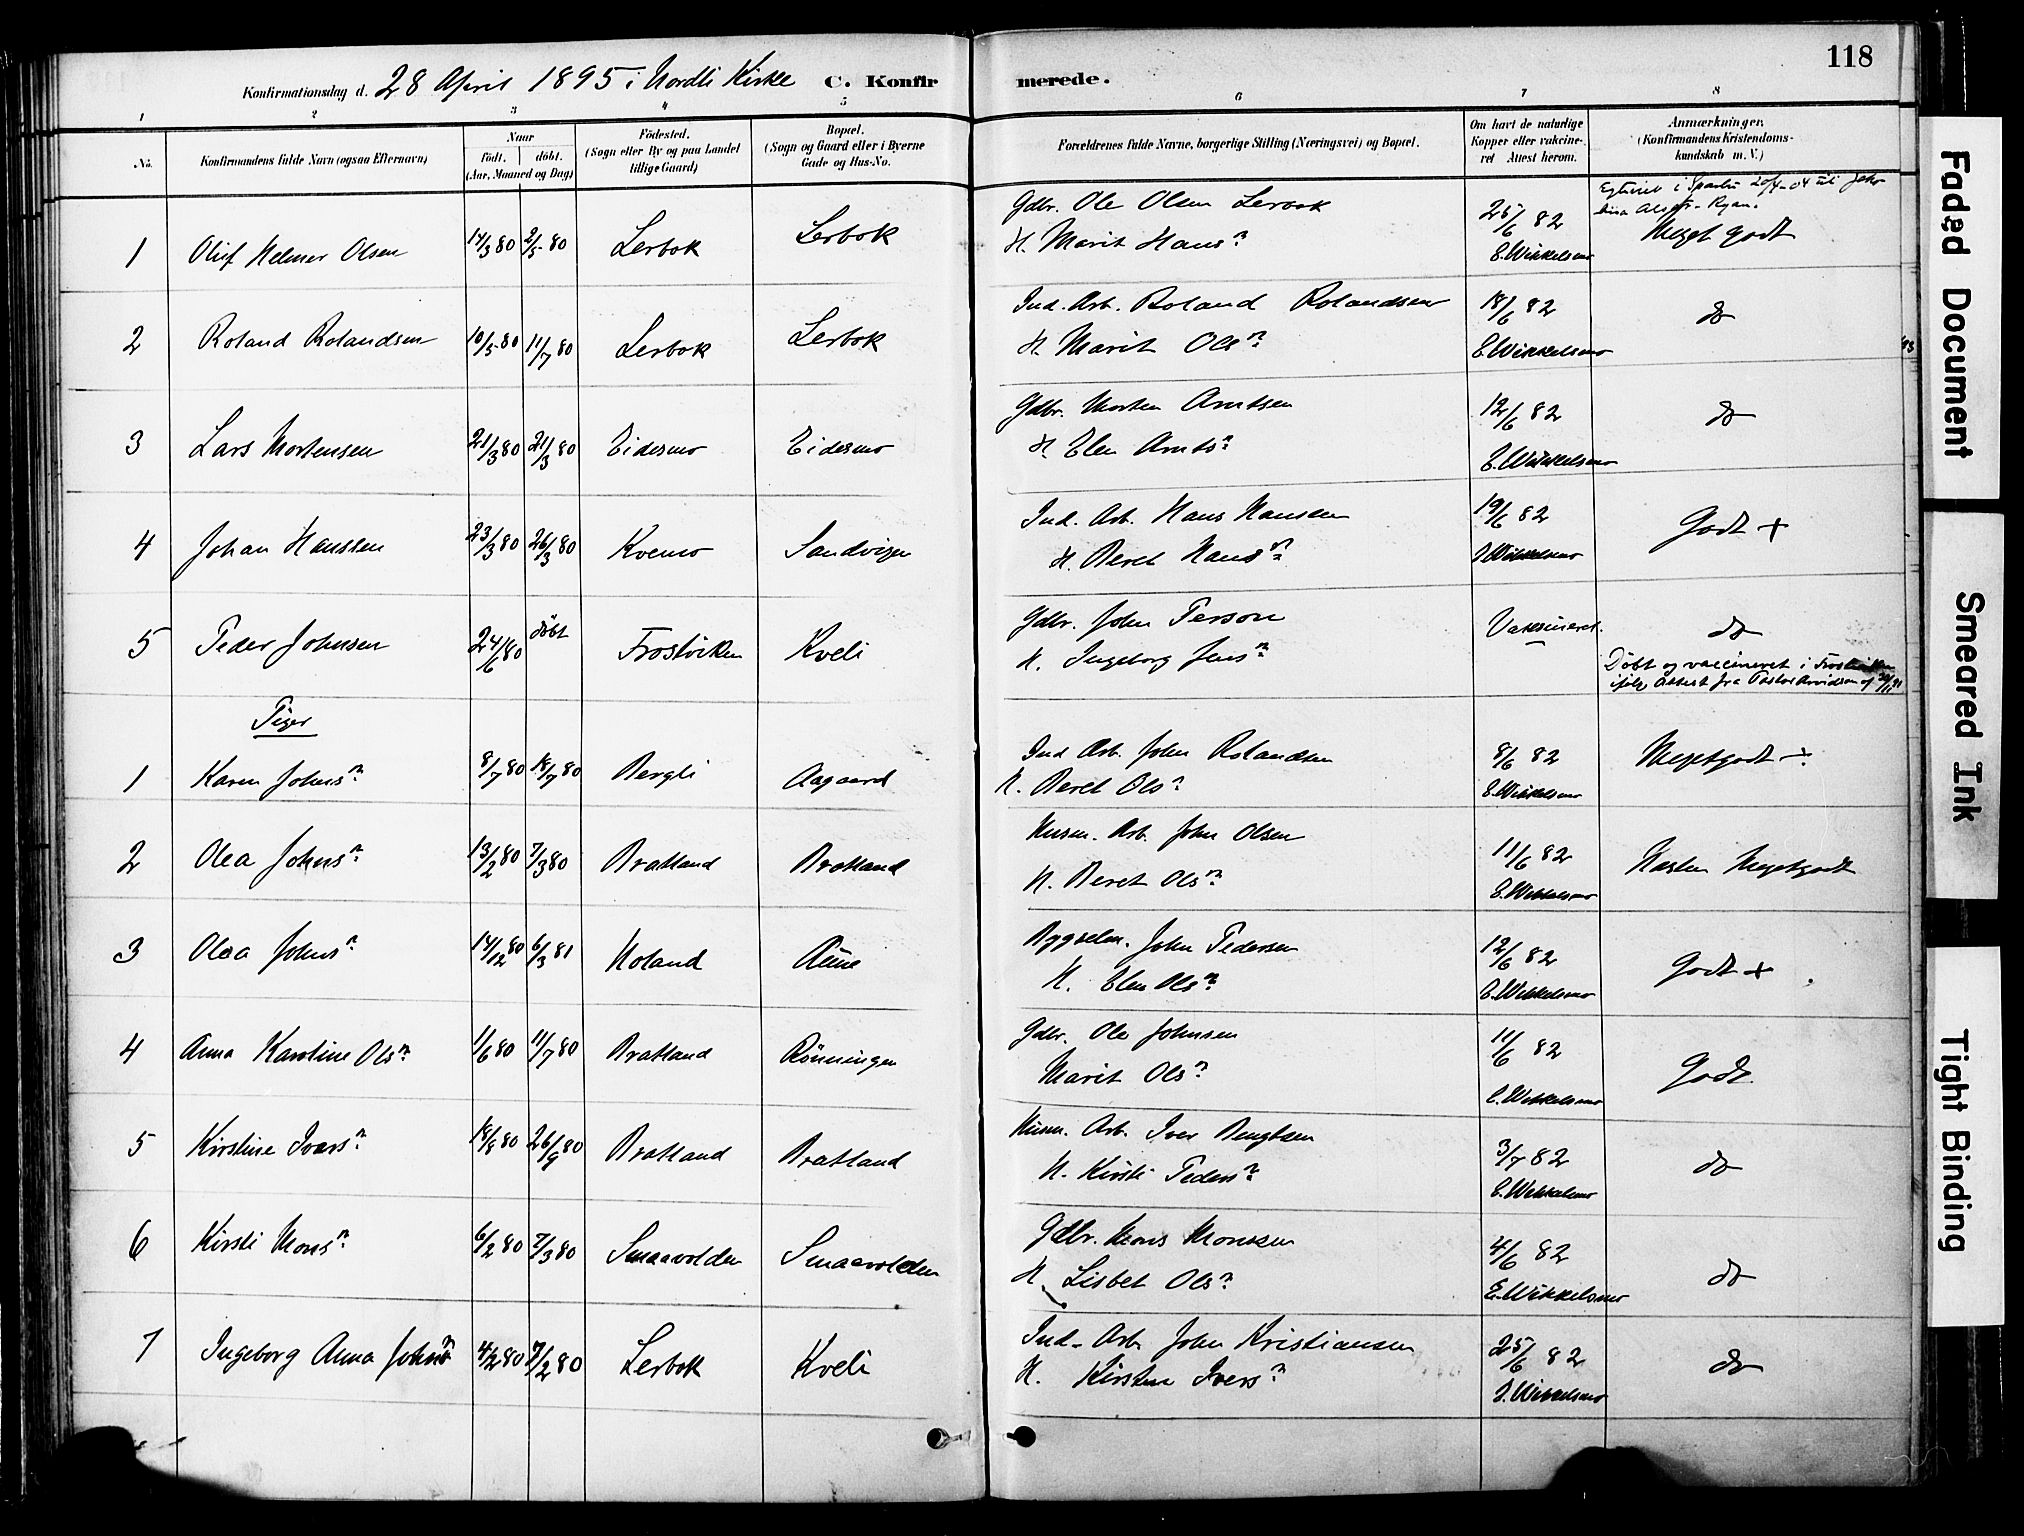 118
Konfirmationsdag d. 28 April 1895 i Nordli Kirke C. Konfirmerede.
1 2 3 4 5 6 7 8
No. Konfirmandens fulde Navn (ogsaa Efternavn)
Naar
født. døbt.
(Aar, Maaned og Dag)
Fødested.
(Sogn eller By og paa Landet
tillige Gaard)
Bopæl.
(Sogn og Gaard eller i Byerne
Gade og Hus-No.
Forældrenes fulde Navne, borgerlige Stilling (Næringsvei) og Bopæl.
Om havt de naturlige
Kopper eller vakcine-
ret Attest herom.
Anmærkninger.
(Konfirmandens Kristendoms-
kundskab m. V.)
Egteviet i Sparbu 20/4-04 til
1 Oluf Helmer Olsen 14/3 80 2/5 80 Lerbok Lerbok Gdbr. Ole Olsen Lerbok 25/6 82 Meget godt
H. Marit Hansn. E. Wikkelsmo
2 Roland Rolandsen 10/5 80 11/7 80 Lerbok Lerbok Ind. Arb. Roland Rolandsen 18/6 82 do
H. Marit Olsn. E. Wikkelsmo
3 Lars Mortensen 21/3 80 21/3 80 Eidesmo Eidesmo Gdbr. Morten Arntsen 12/6 82 do
H. Elen Arntsn. E. Wikkelsmo
4 Johan Hansen 23/3 80 26/3 80 Kvemo Sandvigen Ind. Arb. Hans Hansen 19/6 82 Godt +
H. Beret Hansn. E. Wikkelsmo
5 Peder Johnsen 24/6 80 døbt Frostviken Kveli Gdbr. John Person Vakcineret. do
H. Ingeborg Jensn. Døbt og vaccineret i Frostviken
ifølge Attest fra Pastor Arvidson af
Piger
1 Karen Johnsn. 8/7 80 18/7 80 Bergli Aagaard Ind. Arb. John Rolandsen 8/6 82 Megetgodt ÷
H. Beret Olsn. E. Wikkelsmo
2 Olea Johnsn. 13/2 80 7/3 80 Bratland Bratland Husm. Arb. John Olsen 11/6 82 Næsten Megetgodt
H. Beret Olsn. E. Wikkelsmo
3 Olea Johnsn. 14/12 80 6/3 81 Holand Bygselm. John Pedersen 12/6 82 Godt +
H. Elen Olsn. E. Wikkelsmo
4 Anna Karoline Olsn. 1/6 80 11/7 80 Bratland Rønningen Gdbr. Ole Johnsen 11/6 82 Godt.
Marit Olsn. E. Wikkelsmo
5 Kirstine Iversn. 18/8 80 26/9 80 Bratland Bratland Husm. Arb. Iver Bengtsen 3/7 82 do
H. Kirsti Pedersn. E. Wikkelsmo
6 Kirsti Monsn. 6/2 80 7/3 80 Smaavolden Smaavolden Gdbr. Mons Monsen 4/6 82 do
H. Lisbet Olsn. E. Wikkelsmo
7 Ingeborg Anna Johnsn 4/2 80 7/2 80 Lerbok Kveli Ind. Arb. John Kristiansen 25/6 82 do
H. Kirsten Iversn. E. Wikkelsmo
Faded Document
Smeared Ink
Tight Binding